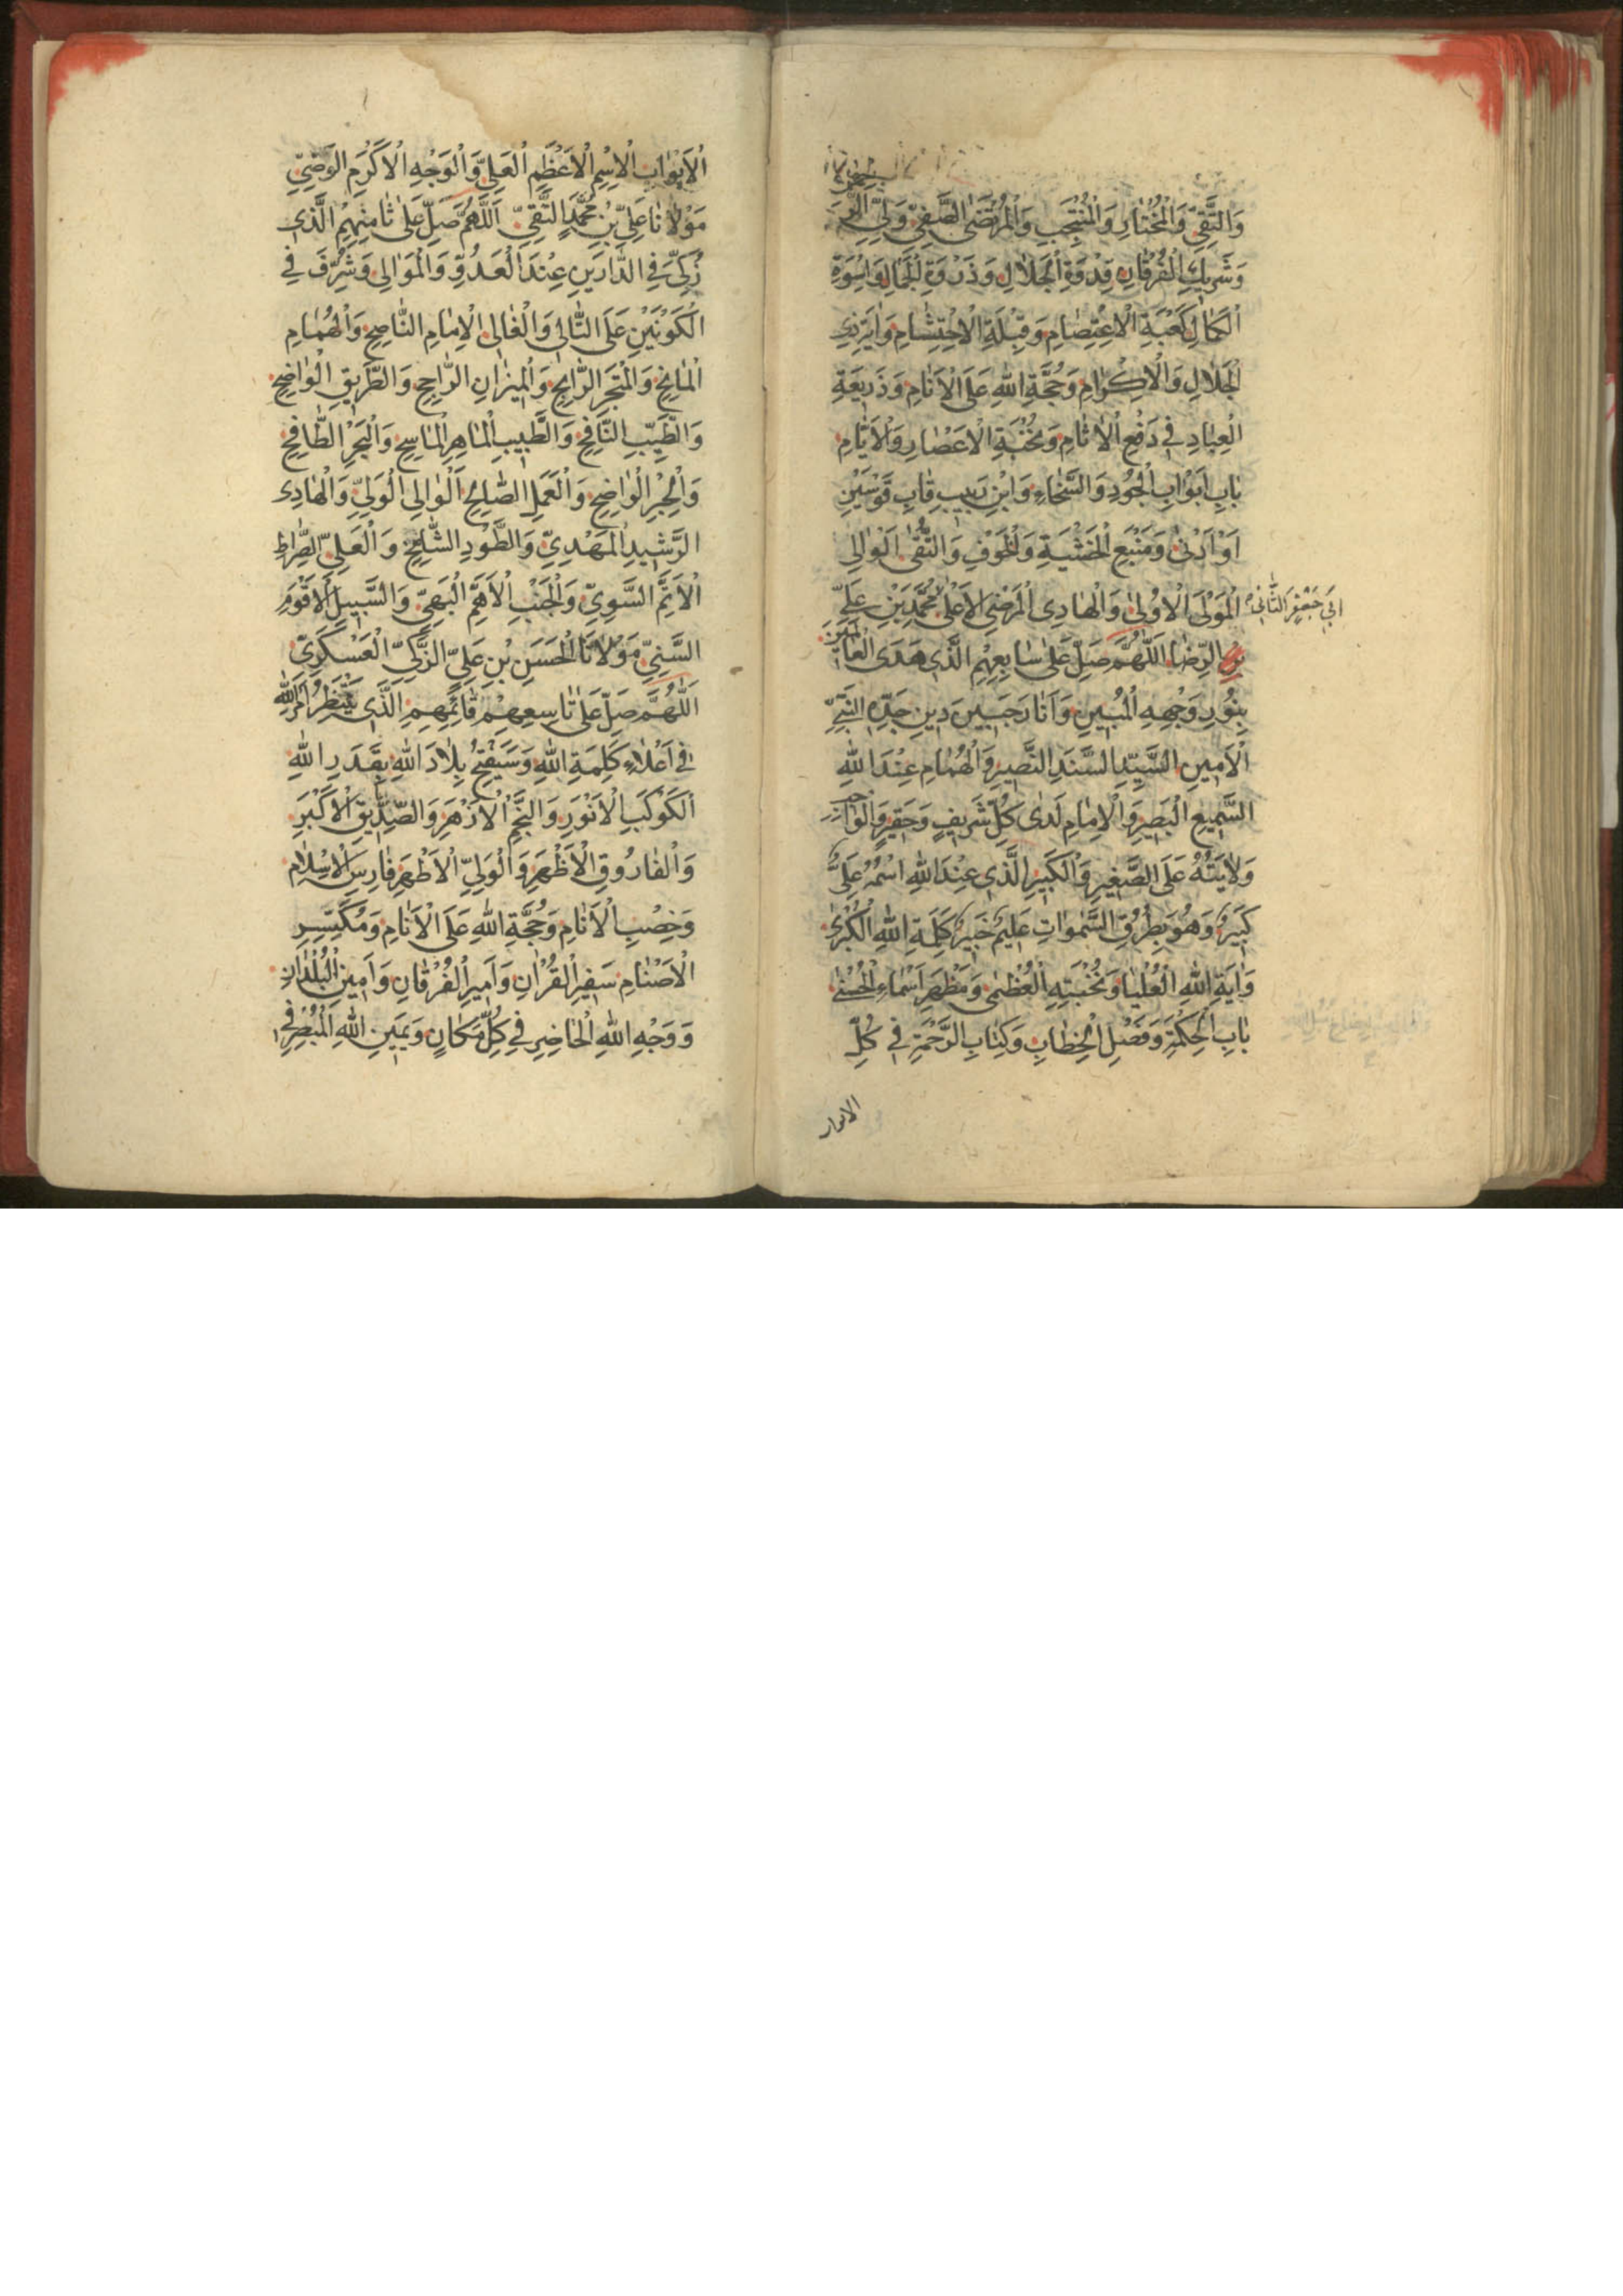 وَالتَّقِيِّ وَالْمُخْتَارِ وَالْمُنْتَجَبِ وَالْمُرْتَضَى الصَّفِيِّ وَلِيِّ
وَشَرِيكِ الْفُرْقَانِ قِدْوَةِ الْجَلَالِ وَذَرْوَةِ الْجَمَالِ وَاُسْوَةِ
الْكَمَالِ كَعْبَةِ الْاِعْتِصَامِ وَقِبْلَةِ الْاِحْتِشَامِ وَاٰيَةِ ذِي
الْجَلَالِ وَالْاِكْرَامِ وَحُجَّةِ اللهِ عَلَى الْاَنَامِ وَذَرِيعَةِ
الْعِبَادِ فِي دَفْعِ الْاٰثَامِ وَنُخْبَةِ الْاَعْصَارِ وَالْاَيَّامِ
بَابِ اَبْوَابِ الْجُودِ وَالسَّخَاءِ وَابْنِ قَابِ قَوْسَيْنِ
اَوْ اَدْنٰى وَمَنْبَعِ الْخَشْيَةِ وَالْخَوْفِ وَالتُّقٰى الْوَالِي
الْمَوْلَى الْاَوْلٰى وَالْهَادِي الْمَرْضِيِّ الْاَعْلٰى مُحَمَّدِ بْنِ عَلِيِّ
اَبِي جَعْفَرٍ الثَّانِي
بْنِ الرِّضَا اَللّٰهُمَّ صَلِّ عَلٰى سَابِعِهِمِ الَّذِي هَدَى الْعَالَمِينَ
بِنُورِ وَجْهِهِ الْمُبِينِ وَاَنَارَ جَبِينَ دِينِ جَدِّهِ النَّبِيِّ
الْاَمِينِ السَّيِّدِ السَّنَدِ النَّصِيرِ وَالْهُمَامِ عِنْدَ اللهِ
السَّمِيعِ الْبَصِيرِ وَالْاِمَامِ لَدٰى كُلِّ شَرِيفٍ وَحَقِيرٍ وَالْوَاجِبِ
وَلَايَتُهُ عَلَى الصَّغِيرِ وَالْكَبِيرِ الَّذِي عِنْدَ اللهِ اسْمُهُ عَلِيٌّ
كَبِيرٌ وَهُوَ بِطُرُقِ السَّمٰوَاتِ عَلِيمٌ خَبِيرٌ كَلِمَةِ اللهِ الْكُبْرٰى
وَاٰيَةِ اللهِ الْعُلْيَا وَنُخْبَتِهِ الْعُظْمٰى وَمَظْهَرِ اَسْمَاءِ الْحُسْنٰى
بَابِ الْحِكْمَةِ وَفَصْلِ الْخِطَابِ وَكِتَابِ الرَّحْمَةِ فِي كُلِّ
الابواب
الْاَبْوَابِ الْاِسْمِ الْاَعْظَمِ الْعَلِيِّ وَالْوَجْهِ الْاَكْرَمِ الْوَضِيِّ
مَوْلَانَا عَلِيِّ بْنِ مُحَمَّدٍ التَّقِيِّ اَللّٰهُمَّ صَلِّ عَلٰى ثَامِنِهِمِ الَّذِي
زُكِّيَ فِي الدَّارَيْنِ عِنْدَ الْعَدُوِّ وَالْمَوَالِي وَشُرِّفَ فِي
الْكَوْنَيْنِ عَلَى التَّالِي وَالْغَالِي الْاِمَامِ النَّاصِحِ وَالْهُمَامِ
الْمَانِحِ وَالْمَتْجَرِ الرَّابِحِ وَالْمِيزَانِ الرَّاجِحِ وَالطَّرِيقِ الْوَاضِحِ
وَالطِّيبِ النَّافِحِ وَالطَّبِيبِ الْمَاهِرِ الْمَاسِحِ وَالْبَحْرِ الطَّافِحِ
وَالْحِبْرِ الْوَاضِحِ وَالْعَمَلِ الصَّالِحِ الْوَالِي الْوَلِيِّ وَالْهَادِي
الرَّشِيدِ الْمَهْدِيِّ وَالطَّوْدِ الشَّامِخِ وَالْعَلِيِّ الصِّرَاطِ
الْاَتَمِّ السَّوِيِّ وَالْجَنْبِ الْاَهَمِّ الْبَهِيِّ وَالسَّبِيلِ الْاَقْوَمِ
السَّنِيِّ مَوْلَانَا الْحَسَنِ بْنِ عَلِيٍّ الزَّكِيِّ الْعَسْكَرِيِّ
اَللّٰهُمَّ صَلِّ عَلٰى تَاسِعِهِمْ قَائِمِهِمِ الَّذِي يَنْتَظِرُ اَمْرَ اللهِ
فِي اَعْلَاءِ كَلِمَةِ اللهِ وَسَيَفْتَحُ بِلَادَ اللهِ بِقَدَرِ اللهِ
الْكَوْكَبِ الْاَنْوَرِ وَالنَّجْمِ الْاَزْهَرِ وَالصِّدِّيقِ الْاَكْبَرِ
وَالْفَارُوقِ الْاَظْهَرِ وَالْوَلِيِّ الْاَطْهَرِ فَارِسِ الْاِسْلَامِ
وَخِصْبِ الْاَنَامِ وَحُجَّةِ اللهِ عَلَى الْاَنَامِ وَمُكَسِّرِ
الْاَصْنَامِ سَفِيرِ الْقُرْاٰنِ وَاَمِيرِ الْفُرْقَانِ وَاَمِينِ الْبُلْدَانِ
وَوَجْهِ اللهِ الْحَاضِرِ فِي كُلِّ مَكَانٍ وَيَمِينِ اللهِ الْمُبْصِرِ فِي